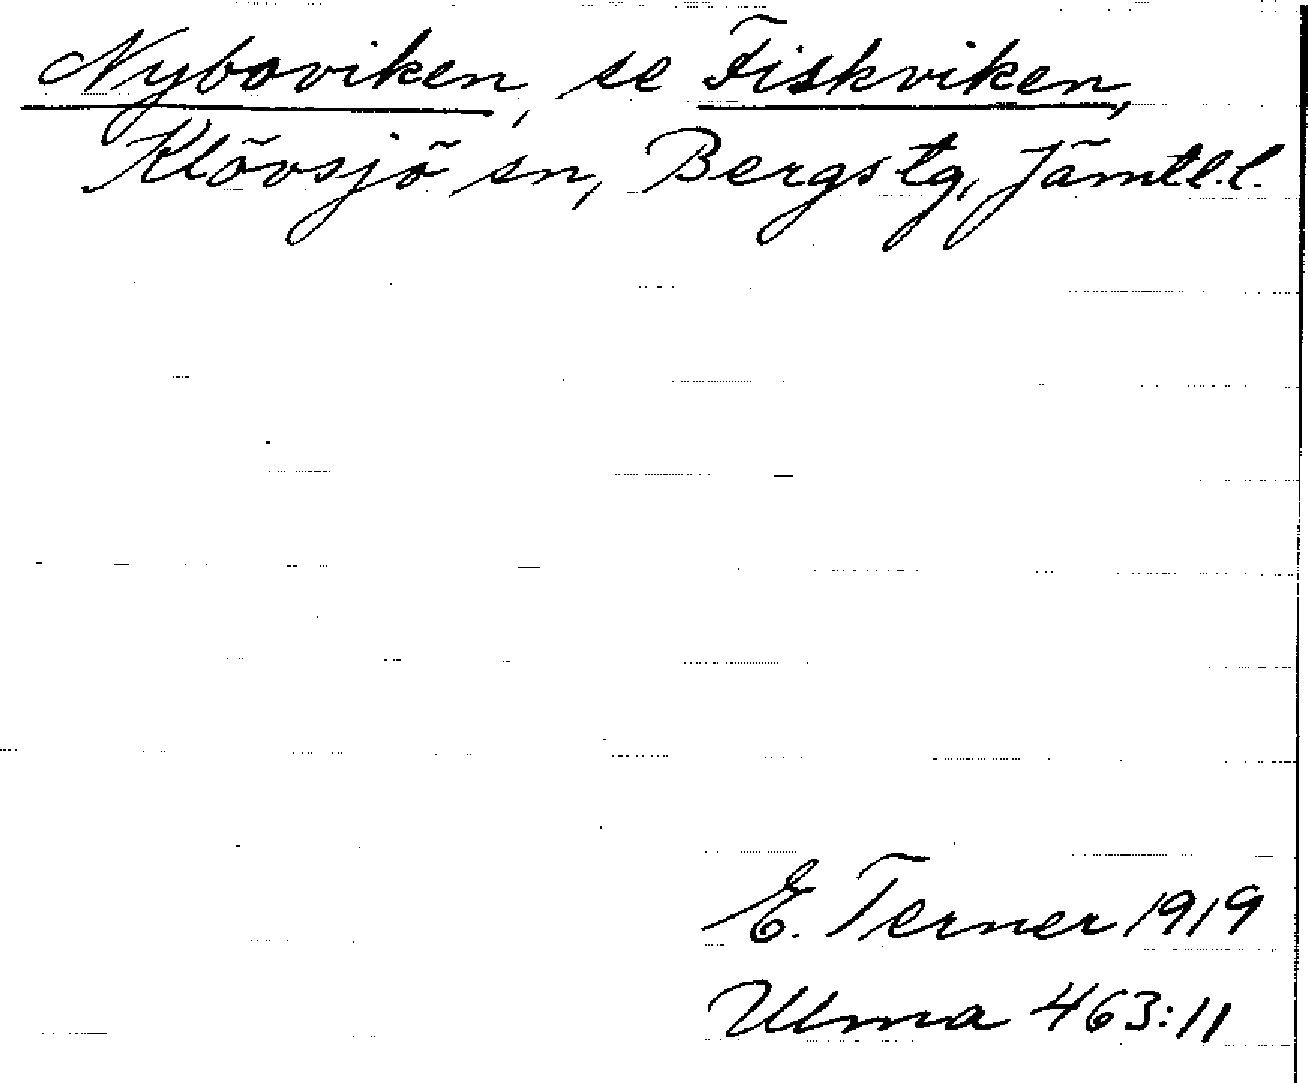 Nyboviken, se Fiskviken,
Klövsjö sn, Bergs tg, Jämtl.l.
E. Terner 1919
Ulma 463:11